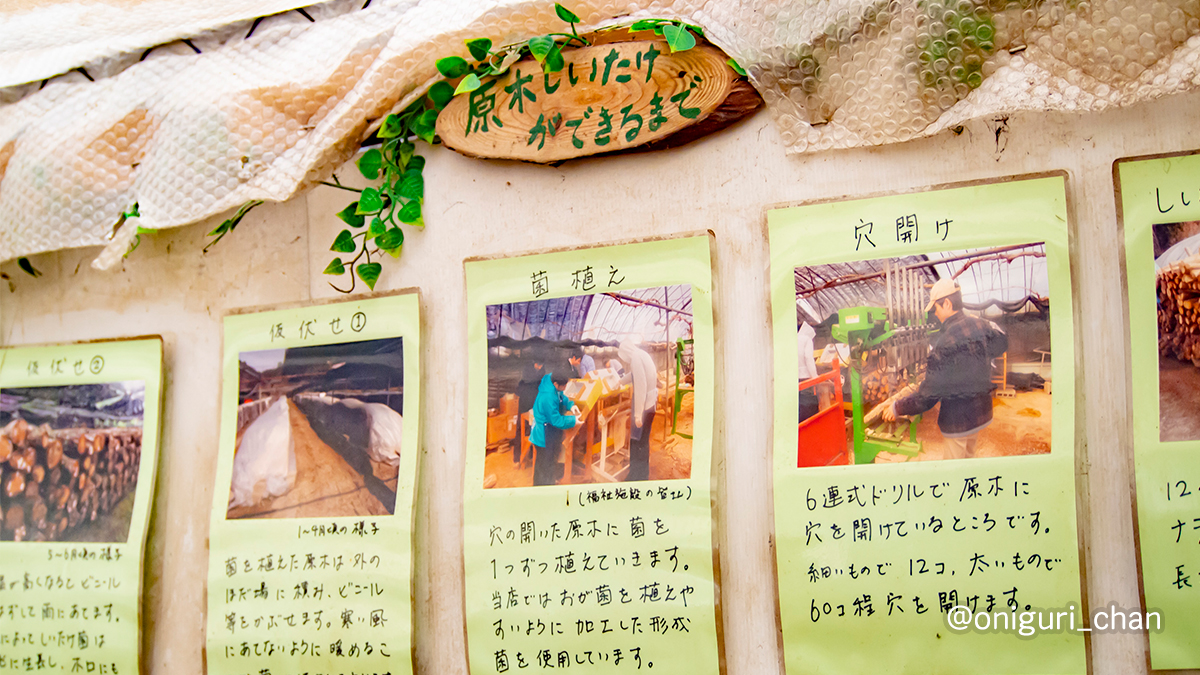 原木しいたけ
ができるまで
しい
12
ナラ
長
穴開け
6連式ドリルで原木に
穴を開けているところです。
細いもので12コ、太いもので
60コ程穴を開けます。
菌植え
(福祉施設の皆さん)
穴の開いた原木に菌を
1つずつ植えていきます。
当店ではおが菌を植えや
すいように加工した形成
菌を使用しています。
仮伏せ①
1~4月頃の様子
菌を植えた原木は外の
ほだ場に積み、ビニール
等をかぶせます。寒い風
にあてないように暖めるこ
仮伏せ②
5~6月頃の様子
が高くなるとビニール
はずして雨にあてます。
によってしいたけ菌は
に生長し、ホロにも
@oniguri_chan